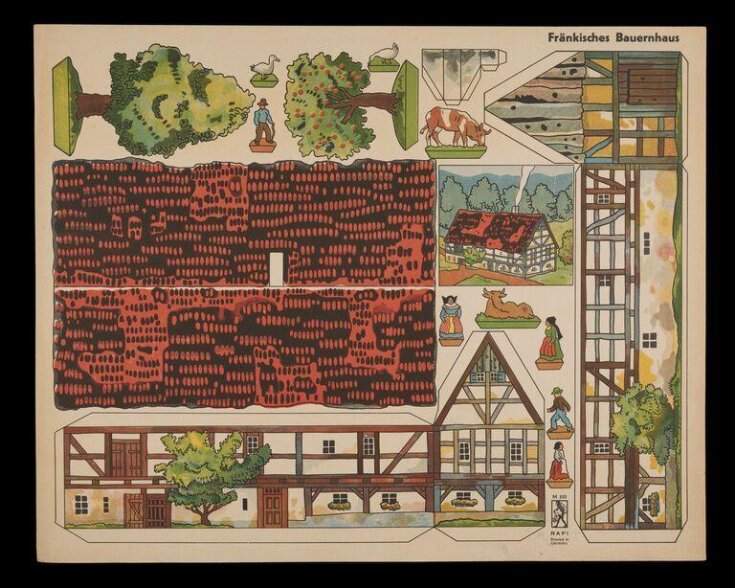 Fränkisches Bauernhaus
M 510
NAPI
Printed in
Germany